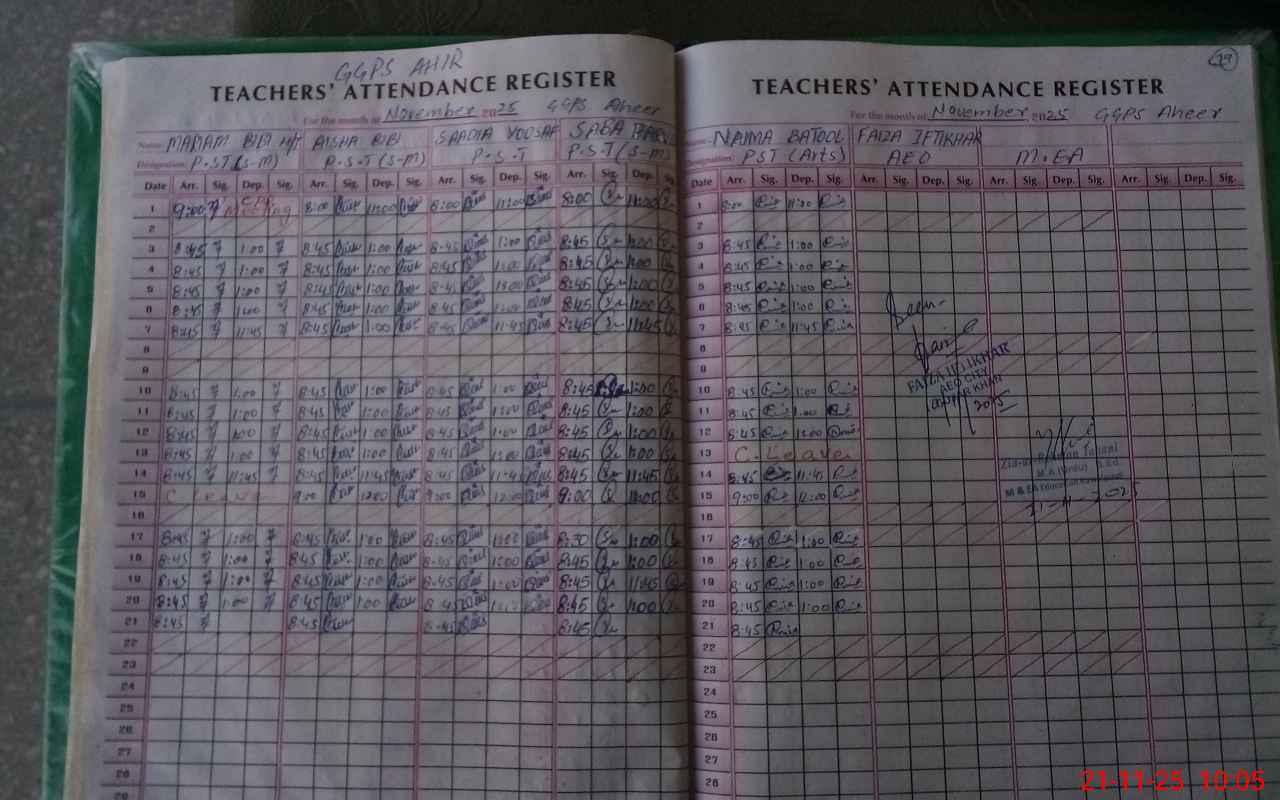 GGPS AHIR
TEACHERS' ATTENDANCE REGISTER
For the month of November 2025 GGPS Aheer
Name MARAM BIBI H/T AISHA BIBI SAADIA YOUSAF SABA
Designation P.S.T (S-M) P.S.T (S-M) P.S.T P.S.T (S-M)
Date Arr. Sig. Dep. Sig. Arr. Sig. Dep. Sig. Arr. Sig. Dep. Sig. Arr. Sig. Dep. Sig.
1 9:00 Meeting 8:00 11:00 8:00 11:00 8:00 11:00
2
3 8:45 1:00 8:45 1:00 8:45 1:00 8:45 1:00
4 8:45 1:00 8:45 1:00 8:45 1:00 8:45 1:00
5 8:45 1:00 8:45 1:00 8:45 1:00 8:45 1:00
6 8:45 1:00 8:45 1:00 8:45 1:00 8:45 1:00
7 8:45 11:45 8:45 1:00 8:45 11:45 8:45 11:45
8
9
10 8:45 1:00 8:45 1:00 8:45 1:00 8:45 1:00
11 8:45 1:00 8:45 1:00 8:45 1:00 8:45 1:00
12 8:45 1:00 8:45 1:00 8:45 1:00 8:45 1:00
13 8:45 1:00 8:45 1:00 8:45 1:00 8:45 1:00
14 8:45 11:45 8:45 11:45 8:45 11:45 8:45 11:45
15 C. Leave 9:00 12:00 9:00 12:00 9:00 12:00
16
17 8:45 1:00 8:45 1:00 8:45 1:00 8:30 1:00
18 8:45 1:00 8:45 1:00 8:45 1:00 8:45 1:00
19 8:45 1:00 8:45 1:00 8:45 1:00 8:45 11:45
20 8:45 1:00 8:45 1:00 8:45 1:00 8:45 1:00
21 8:45 8:45 8:45 8:45
22
23
24
25
26
27
28
29
19
TEACHERS' ATTENDANCE REGISTER
For the month of November 2025 GGPS Aheer
Name NAIMA BATOOL FAIZA IFTIKHAR
Designation PST (Arts) AEO M.EA
Date Arr. Sig. Dep. Sig. Arr. Sig. Dep. Sig. Arr. Sig. Dep. Sig. Arr. Sig. Dep. Sig.
1 8:00 11:00
2
3 8:45 1:00
4 8:45 1:00
5 8:45 1:00
6 8:45 1:00
7 8:45 11:45
8
9
10 8:45 1:00
11 8:45 1:00
12 8:45 1:00
13 C. Leave
14 8:45 11:45
15 9:00 12:00
16
17 8:45 1:00
18 8:45 1:00
19 8:45 1:00
20 8:45 1:00
21 8:45
22
23
24
25
26
27
28
Seen
FAIZA IFTIKHAR
AEO CITY
KHAN
M.A (Urdu) B.Ed
21-11-2025
21-11-25 10:05